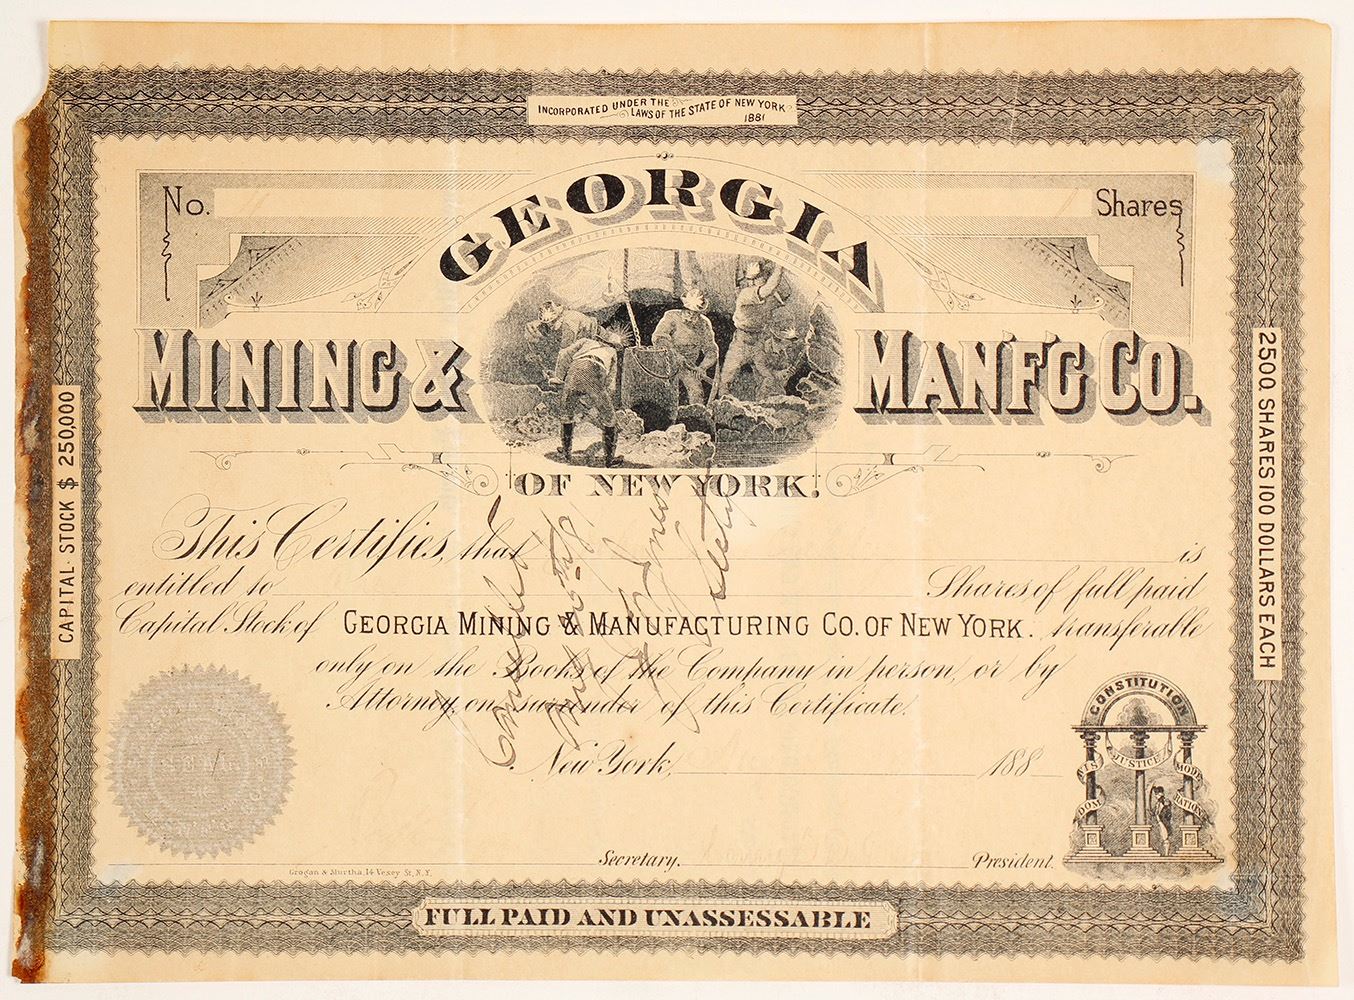 INCORPORATED UNDER THE
LAWS OF THE STATE OF NEW YORK
1881
No.
Shares
GEORGIA
MINING & MAN'F'G CO.
OF NEW YORK.
CAPITAL STOCK $ 250,000
2500, SHARES 100 DOLLARS EACH
This Certifies, that is
entitled to Shares of full paid
Capital Stock of GEORGIA MINING & MANUFACTURING CO. OF NEW YORK. transferable
only on the Books of the Company in person, or by
Attorney, on surrender of this Certificate.
New York, 188
CONSTITUTION
WIS DOM
JUSTICE
MODE RATION
Secretary.
President.
Grogan & Murtha, 14 Vesey St, N.Y.
FULL PAID AND UNASSESSABLE